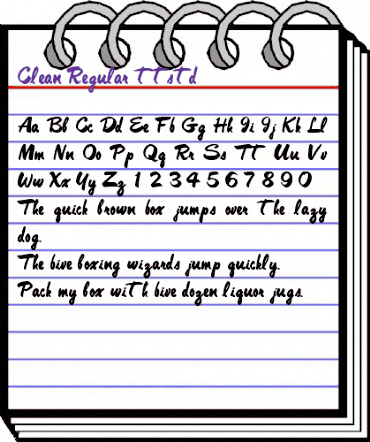 Clean Regular T T sT d
Aa Bb Cc Dd Ee Ff Gg Hh Ii Jj Kk Ll
Mm Nn Oo Pp Qq Rr Ss TT Uu Vv
Ww Xx Yy Zz 1 2 3 4 5 6 7 8 9 0
The quick brown fox jumps over T he lazy
dog.
The five boxing wizards jump quickly.
Pack my box wiT h five dozen liquor jugs.